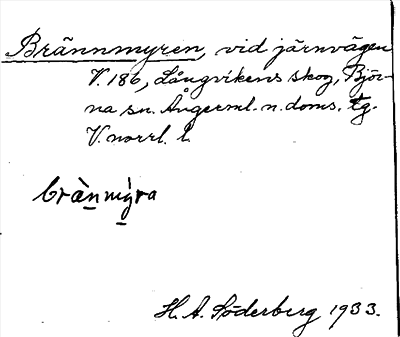 Brännmyren, vid järnvägen
V. 186, Långvikens skog, Björ-
na sn. Ångerml. n. doms. tg.
V. norrl. l.
bràn̲mỳ̲ra
H. A. Söderberg 1933.